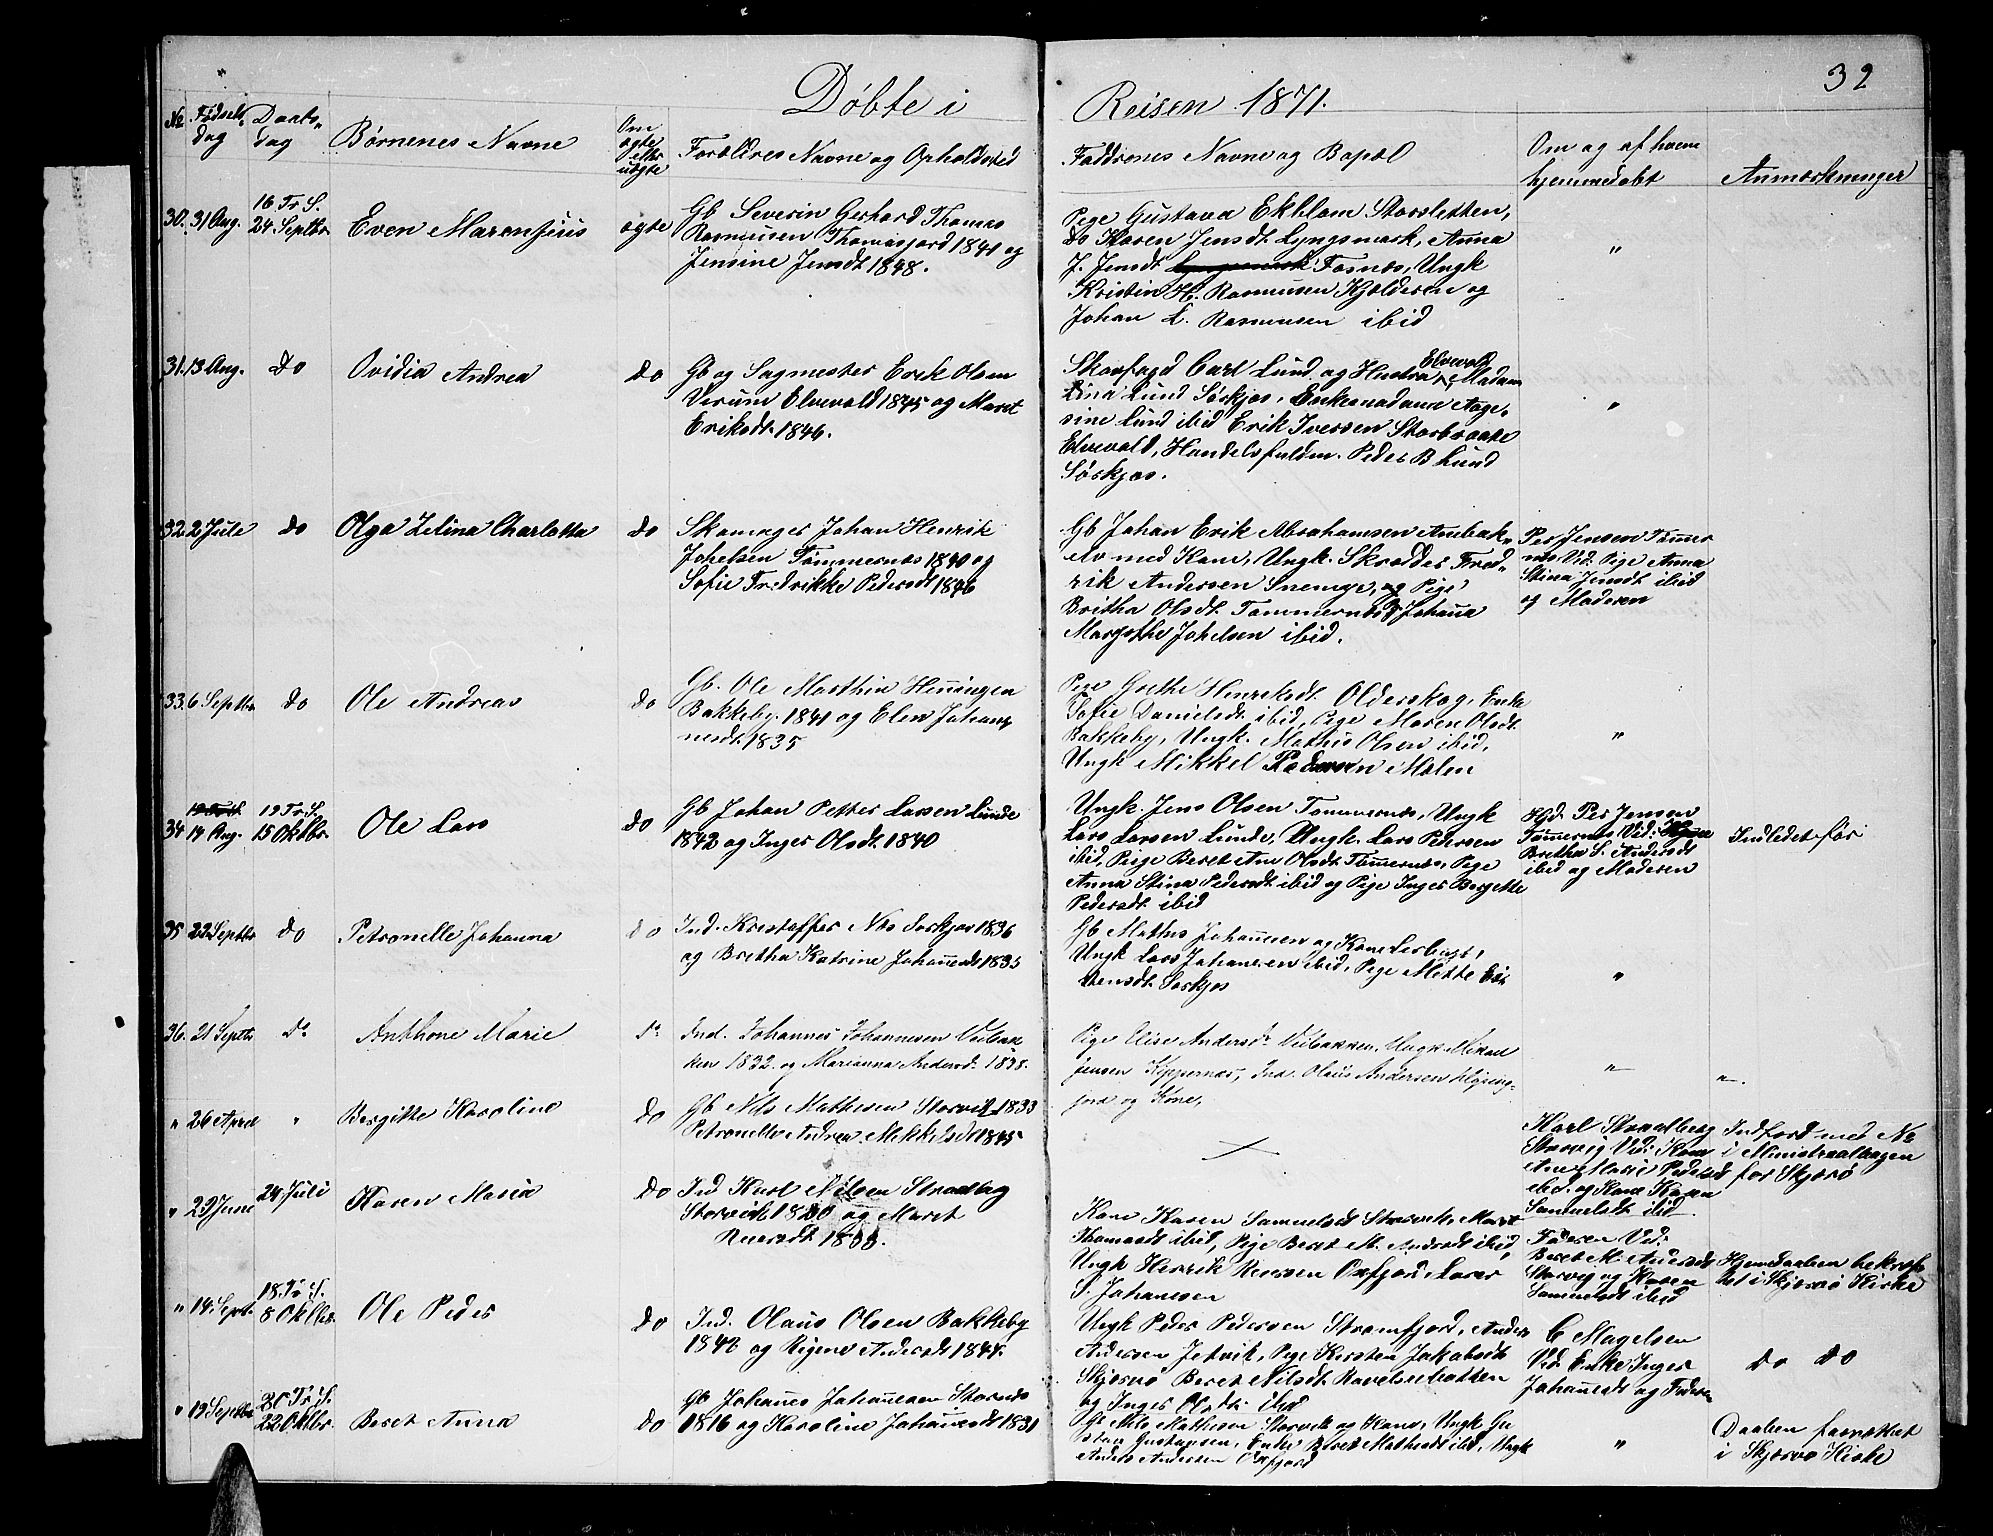 32
Døbte i Reisen 1871.
No Fødsels dag Daabs dag Børnenes Navne Om ægte eller uægte Forældres Navne og Opholdssted Faddrenes Navne og Bopæl Om og af hvem hjemmedøbt Anmærkninger
30. 31 Aug. 16 Tr. S. 24 Septbr. Even Marensius ægte
Gb Severin Gerhard Thomas
Rasmussen Thomasjord 1841 og
Jensine Jensdt. 1848.
Pige Gustava Ekhlom Storsletten,
Do Karen Jensdt. Lyngsmark, Anna
J. Jensdt. Fosnes, Ungk
Kristin H. Rasmussen Kjelderen og
Johan L. Rasmussen ibid
"
31. 13 Aug. Do Ovidia Andrea Do
Gb og Sagmester Erik Olsen
Verum Elvevold 1845 og Maret
Eriksdt. 1846.
Skovfogd Carl Lund og Hustru Elvevold, Madam
Lina Lund Sørkjos, Enkemadame Aage-
sine Lund ibid Erik Iversen Storbraate
Elvevold, Handelsfuldm. Peder B Lund
Sørkjos.
"
32. 2 Jule Do Olga Zelina Charlotta Do
Skomager Johan Henrik
Johelsen Tømmernes 1840 og
Sofie Fredrikke Pedersdt 1846
Gb Johan Erik Abrahamsen Aubak-
elv med Kone, Ungk. Skrædder Fred-
rik Andersen Snemye, og Pige
Britha Olsdt. Tømmernes, Johanna
Margethe Johelsen ibid.
Per Jensen Tømmer
nes Vid. Pige Anna
Stina Jensdt ibid
og Moderen
33. 6 Septbr Do Ole Andreas Do
Gb. Ole Marthin Henningen
Bakkeby 1841 og Elen Johan-
nesdt. 1835
Pige Grethe Henriksdt. Olderskog, Enke
Sofie Danielsdt. ibid, Pige Maren Olsdt.
Bakkeby, Ungk. Mathis Olsen ibid,
Ungk Mikkel Pedersen Molen
"
34 14 Aug. 19 Tr. S. 15 Oktbr. Ole Lars Do
Gb Johan Petter Larsen Lunde
1842 og Inger Olsdt. 1840
Ungk. Jens Olsen Tømmernes, Ungk
Lars Larsen Lunde, Ungk. Lars Pedersen
ibid, Pige Beret Ane Olsdt. Tømmernes, Pige
Anna Stina Pedersdt. ibid og Pige Inger Bergette
Pedersdt ibid
Hjd. Per Jensen
Tømmernes Vid:
Bretha S. Andersdt
ibid og Moderen
Indledet før
35 22 Septbr Do Petronelle Johanna Do
Ind. Kristoffer Nils Sørkjos 1836
og Bretha Katrine Johannesdt 1835
Gb Mathis Johannesen og Kone Lerbugt,
Ungk Lars Johannesen ibid, Pige Mette Eri-
Sørkjos
"
36. 21 Septbr. Do Anthone Marie Do
Ind. Johannes Johannesen Veibak-
ken 1832. og Marianna Andersd. 1838.
Pige Elise Andersdt. Veibakken, Ungk. Mikael
Jensen Kippernes, Ind. Olaus Andersen
og Kone,
" "
" 26 April " Bergitte Karoline Do
Gb Nils Mathesen Storvik 1833
Petronelle Andrea Mikkelsdt 1845
Karl Strandberg
Storvig Vid: Kone
Ane Marie Pedersdt
ibd. og Kone Karen
Samuelsdt ibid
Indført med No
i Ministraalbogen
for Skjervø
" 23 June 24 Juli Karen Maria Do
Ind Karl Nilsen Strandberg
Storvik 1820 og Maret
1833.
Kone Karen Samuelsdt Storvik, Maret
Thomasdt ibid, Pige Beret M. Andersdt ibid,
Ungk Henrik Oxfjord, Lars
S. Johansen
Faderen Vid:
Beret M. Andersdt
Storvig og Karen
Samuelsdt ibid
Hjemdaaben bekræf-
tet i Skjervø Kirke
" 14. Sept. 18. Tr. S. 8 Oktbr. Ole Peder Do
Ind. Olaus Olsen Bakkeby
1842 og Rigene Andersdt 1844.
Ungk Peder Pedersen Strømfjord, Anders
Andersen Jetvik, Pige Kirsten Jakobsdt
Skjervø Beret Nilsdt.
og Inger Olsdt. ibid
C Magelsen
Vid: Enke Inger
Johannesdt og Faderen
Do Do
" 19 Septbr 20 Tr. S. 22 Oktbr. Beret Anna Do
Gb Johannes Johannesen Stornes
1816 og Karoline Johannesdt 1831
Gb Nils Mathesen Storvik og Kone, Ungk Gu
stav Gustavsen, Enke Beret Mathesdt ibid, Ungk
Anders Andersen Oxfjord
"
Daaben forrettet
i Skjervø Kirke